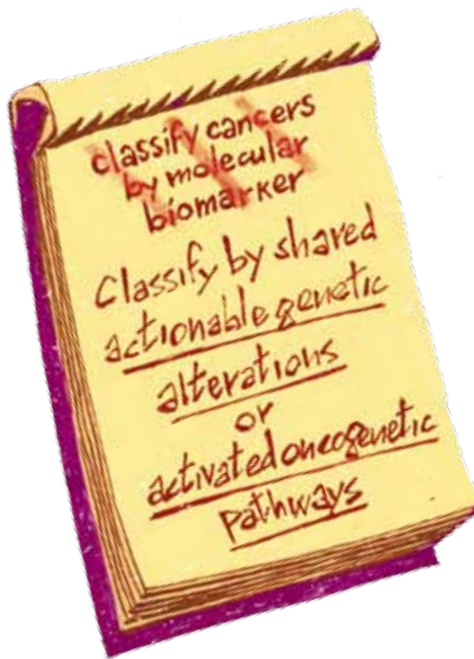 classify cancers
by molecular
biomarker
Classify by shared
actionable genetic
alterations
or
activated oncogenetic
pathways